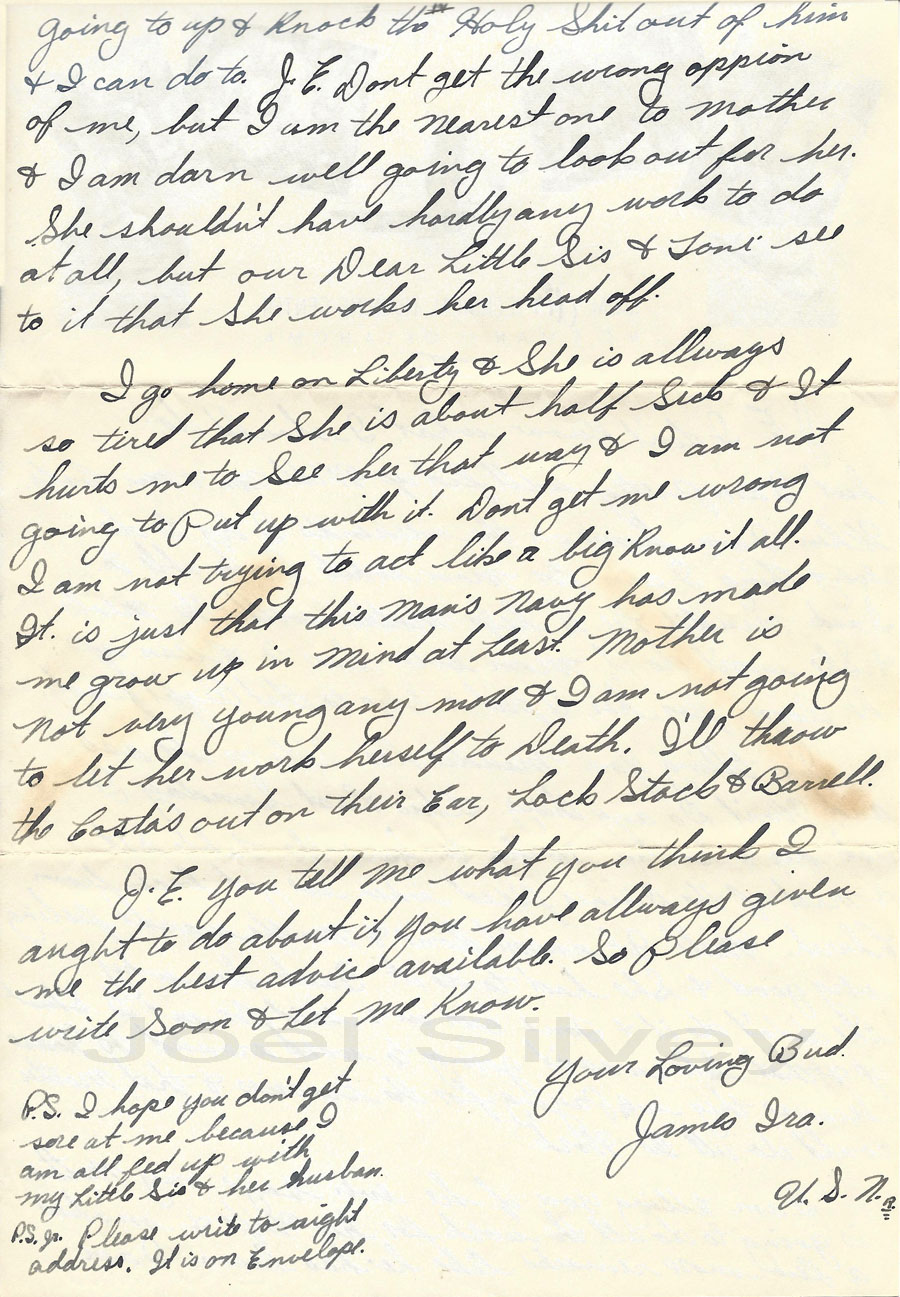 going to up & Knock the Holy Shit out of him
& I can do to. J.E. Dont get the wrong oppion
of me, but I am the nearest one to Mother
& I am darn well going to look out for her.
She shouldn't have hardly any work to do
at all, but our Dear Little Sis & Toni see
to it that She works her head off.
I go home on Liberty & She is allways
so tired that She is about half Sick & It
hurts me to See her that way & I am not
going to Put up with it. Dont get me wrong
I am not trying to act like a big Know it all.
It. is just that this Man's Navy has made
me grow up in Mind at Least. Mother is
Not very young any more & I am not going
to let her work herself to Death. I'll throw
the Costa's out on their Ear, Lock Stock & Barrell.
J.E. you tell me what you think I
aught to do about it, you have allways given
me the best advice available. So Please
write Soon & Let me Know.
Joel Silvey
Your Loving Bud.
James Ira.
U.S.N.R.
P.S. I hope you don't get
sore at me because I
am all fed up with
my Little Sis & her husban.
P.S. Jr. Please write to right
address. It is on Envelope.